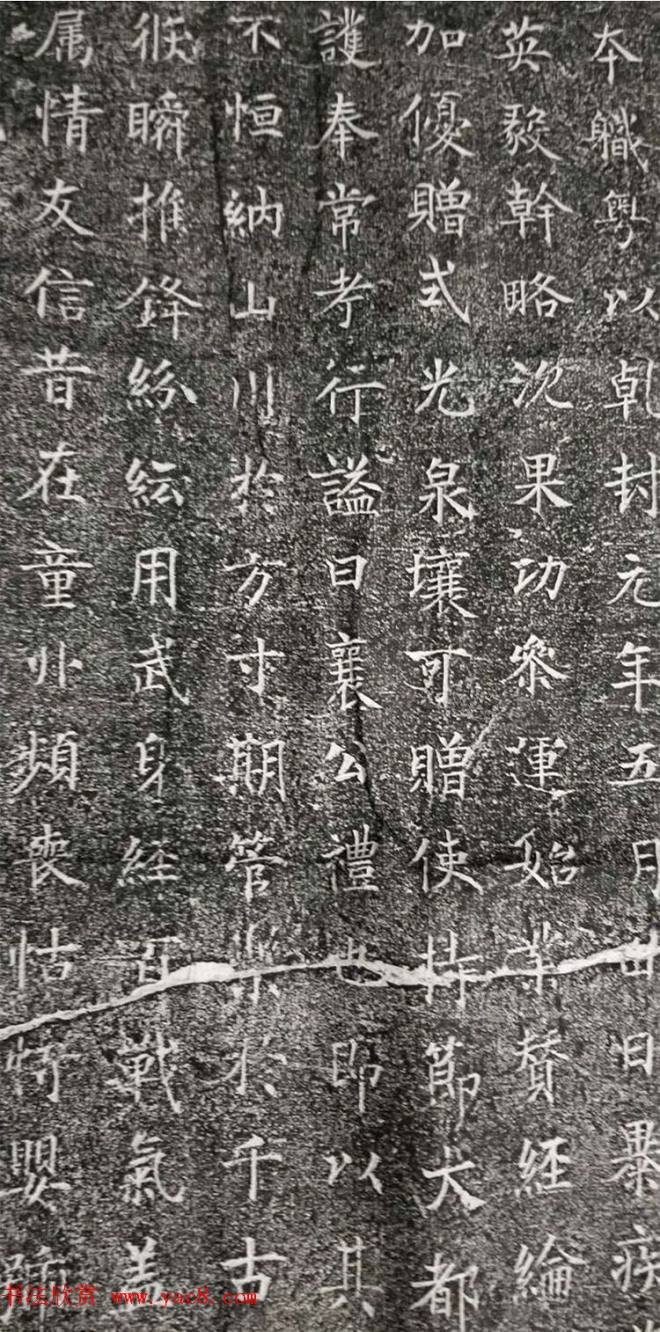 本職粤以乹封元年五月廿日日暴疾
英毅幹略沉果功叅運始業賛經綸
加優贈式光泉壤可贈使持節大都
護奉常考行謚曰襄公禮也即以其
不恒納山川於方寸期管樂於千古
倏瞬推鋒紛紜用武身經百戰氣盖
属情友信昔在童丱頻喪怙恃嬰
书法欣赏 www.yac8.com